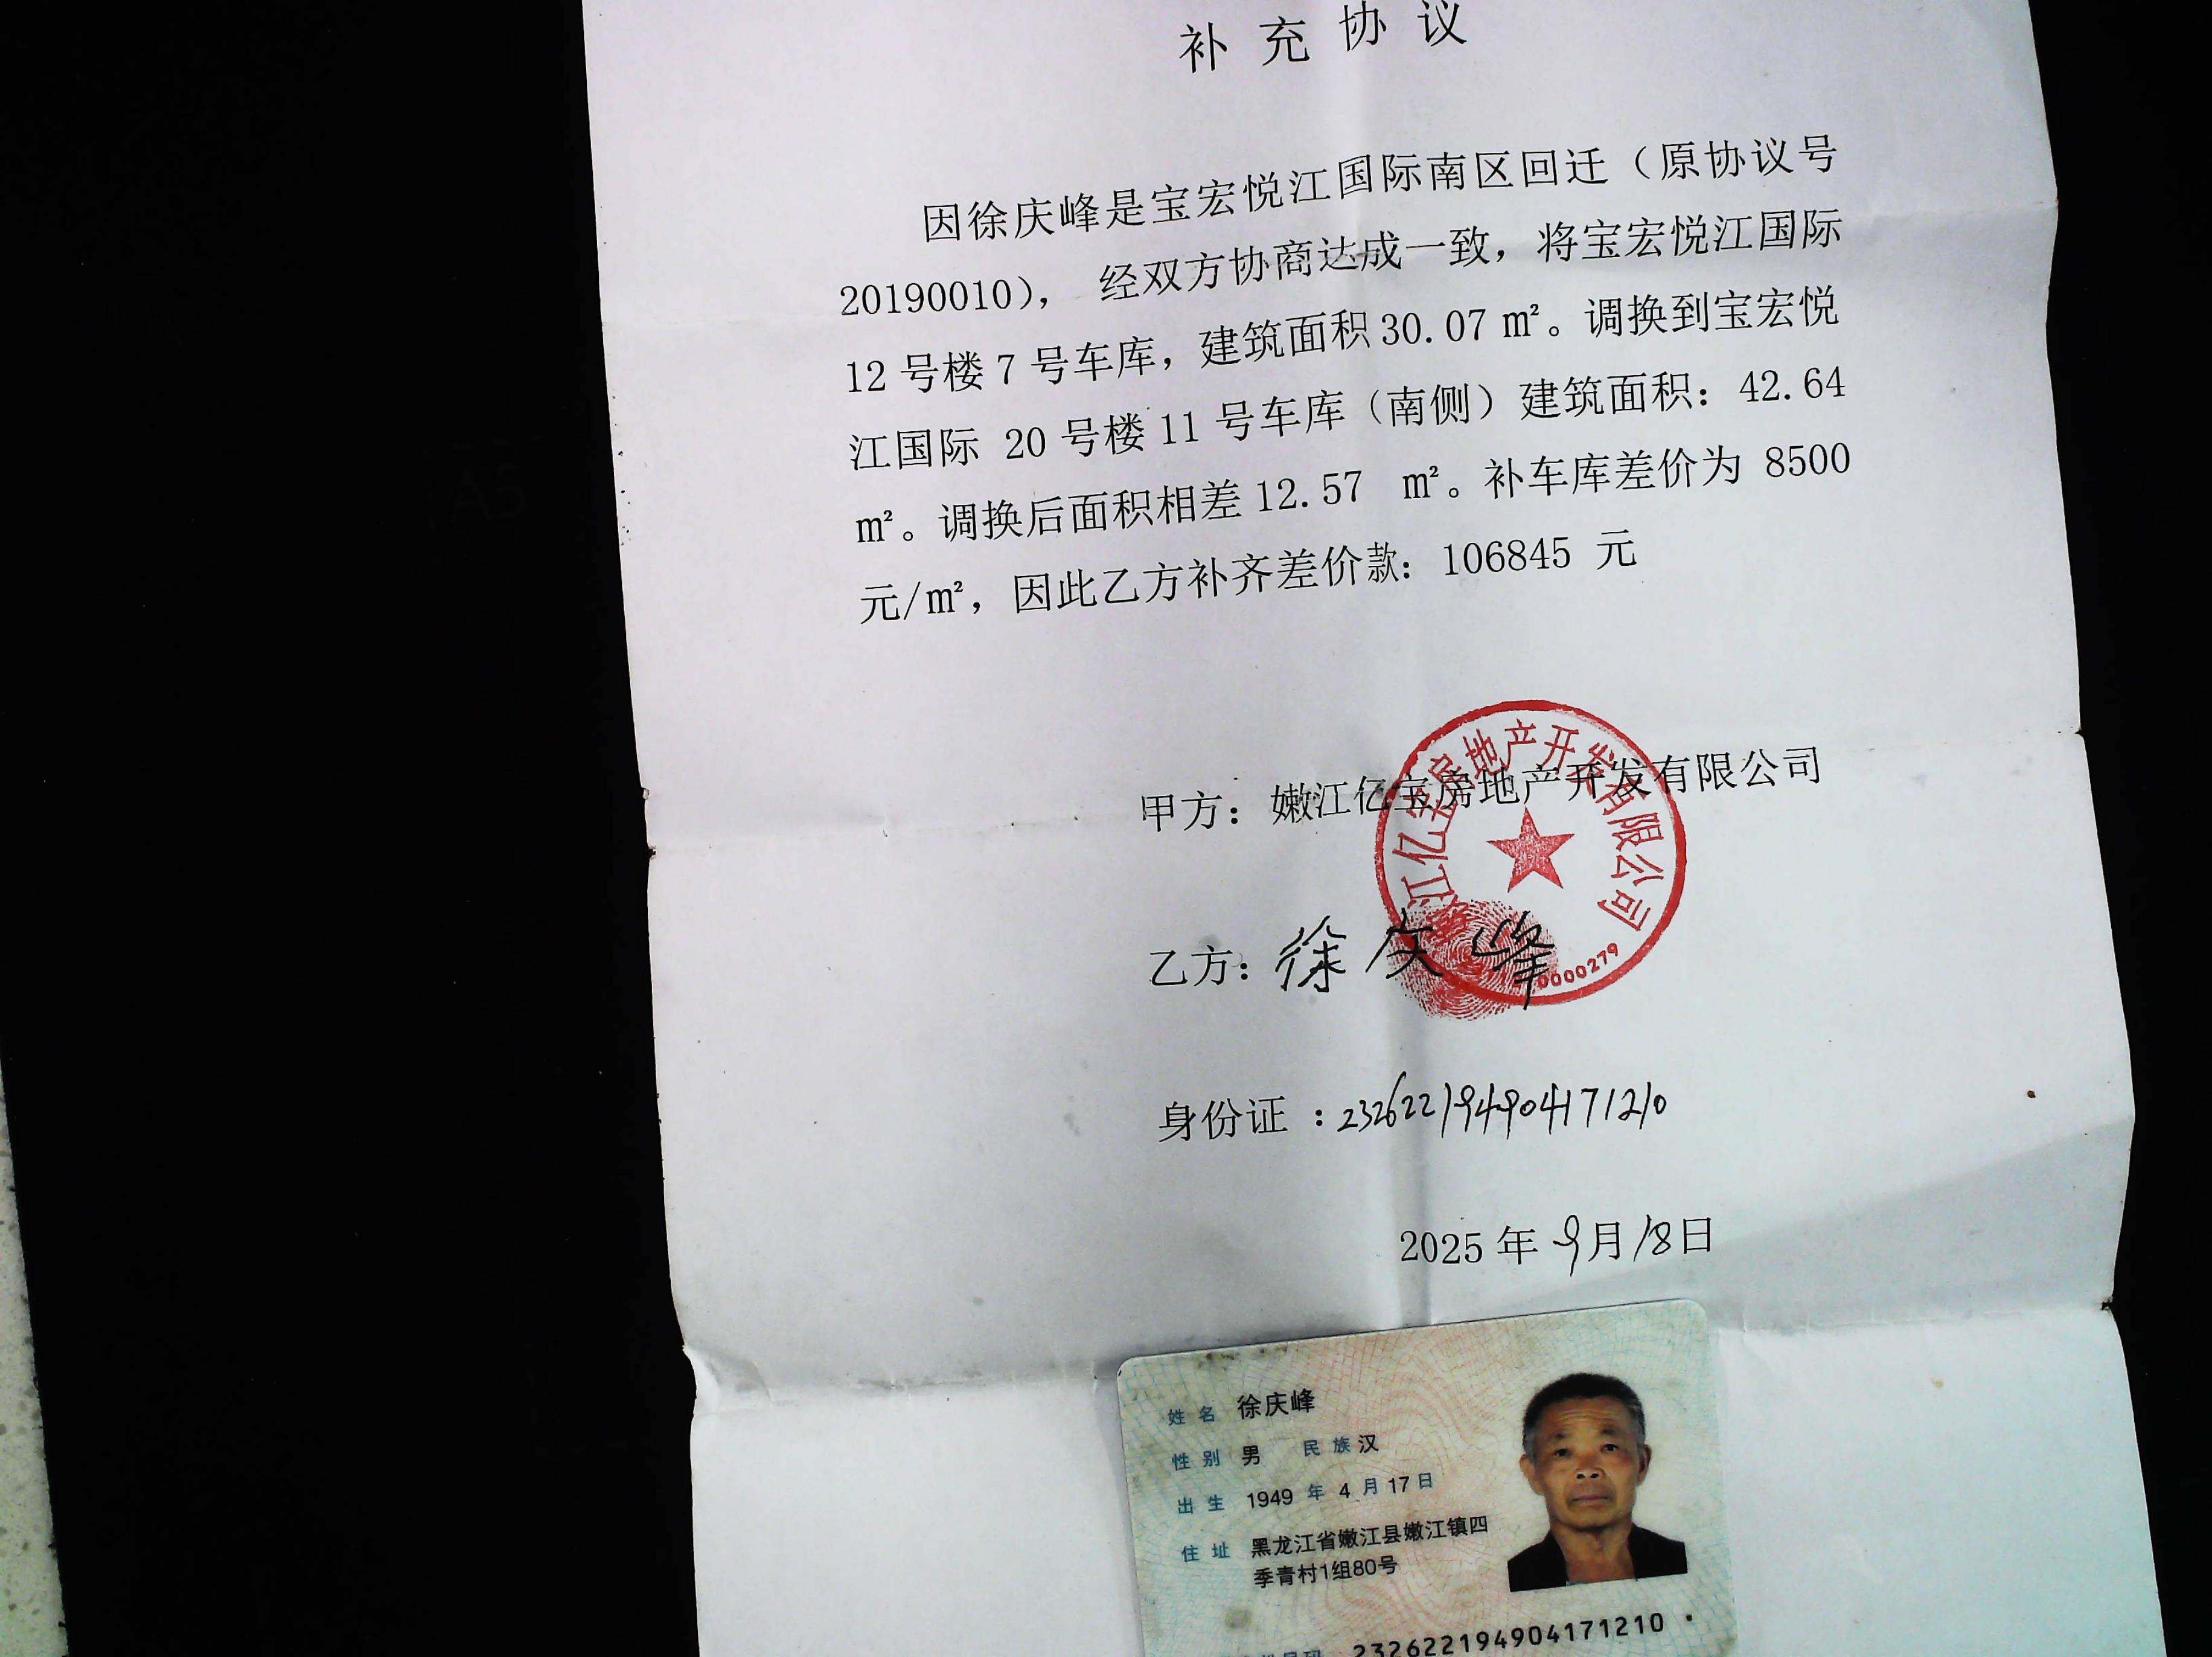 补充协议
因徐庆峰是宝宏悦江国际南区回迁（原协议号
20190010），经双方协商达成一致，将宝宏悦江国际
12号楼7号车库，建筑面积30.07㎡。调换到宝宏悦
江国际 20号楼11号车库（南侧）建筑面积：42.64
㎡。调换后面积相差12.57 ㎡。补车库差价为 8500
元/㎡，因此乙方补齐差价款：106845 元
甲方：嫩江亿宝房地产开发有限公司
江亿宝房地产开发有限公司
0000279
乙方：徐庆峰
身份证：232622194904171210
2025年9月18日
姓名 徐庆峰
性别 男 民族 汉
出生 1949年4月17日
住址 黑龙江省嫩江县嫩江镇四
季青村1组80号
232622194904171210